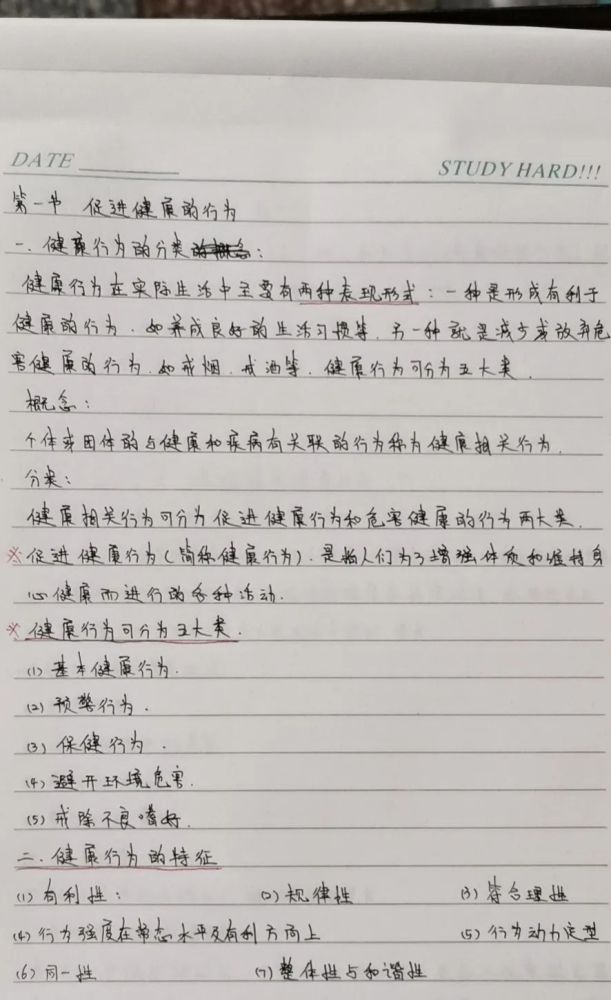 DATE
STUDY HARD!!!
第一节 促进健康的行为
一.健康行为的分类的概念:
健康行为在实际生活中主要有两种表现形式:一种是形成有利于
健康的行为.如养成良好的生活习惯等.另一种就是减少或放弃危
害健康的行为.如戒烟.戒酒等.健康行为可分为五大类.
概念:
个体或团体的与健康和疾病有关联的行为称为健康相关行为.
分类:
健康相关行为可分为促进健康行为和危害健康的行为两大类.
※促进健康行为(简称健康行为).是指人们为了增强体质和维持身
心健康而进行的各种活动.
※健康行为可分为五大类.
(1)基本健康行为.
(2)预警行为.
(3)保健行为.
(4)避开环境危害.
(5)戒除不良嗜好.
二.健康行为的特征
(1)有利性: (2)规律性 (3)符合理性
(4)行为强度在常态水平及有利方向上 (5)行为动力定型
(6)同一性 (7)整体性与和谐性